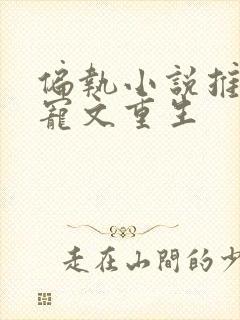 偏執小說推
寵文重生
走在山間的少